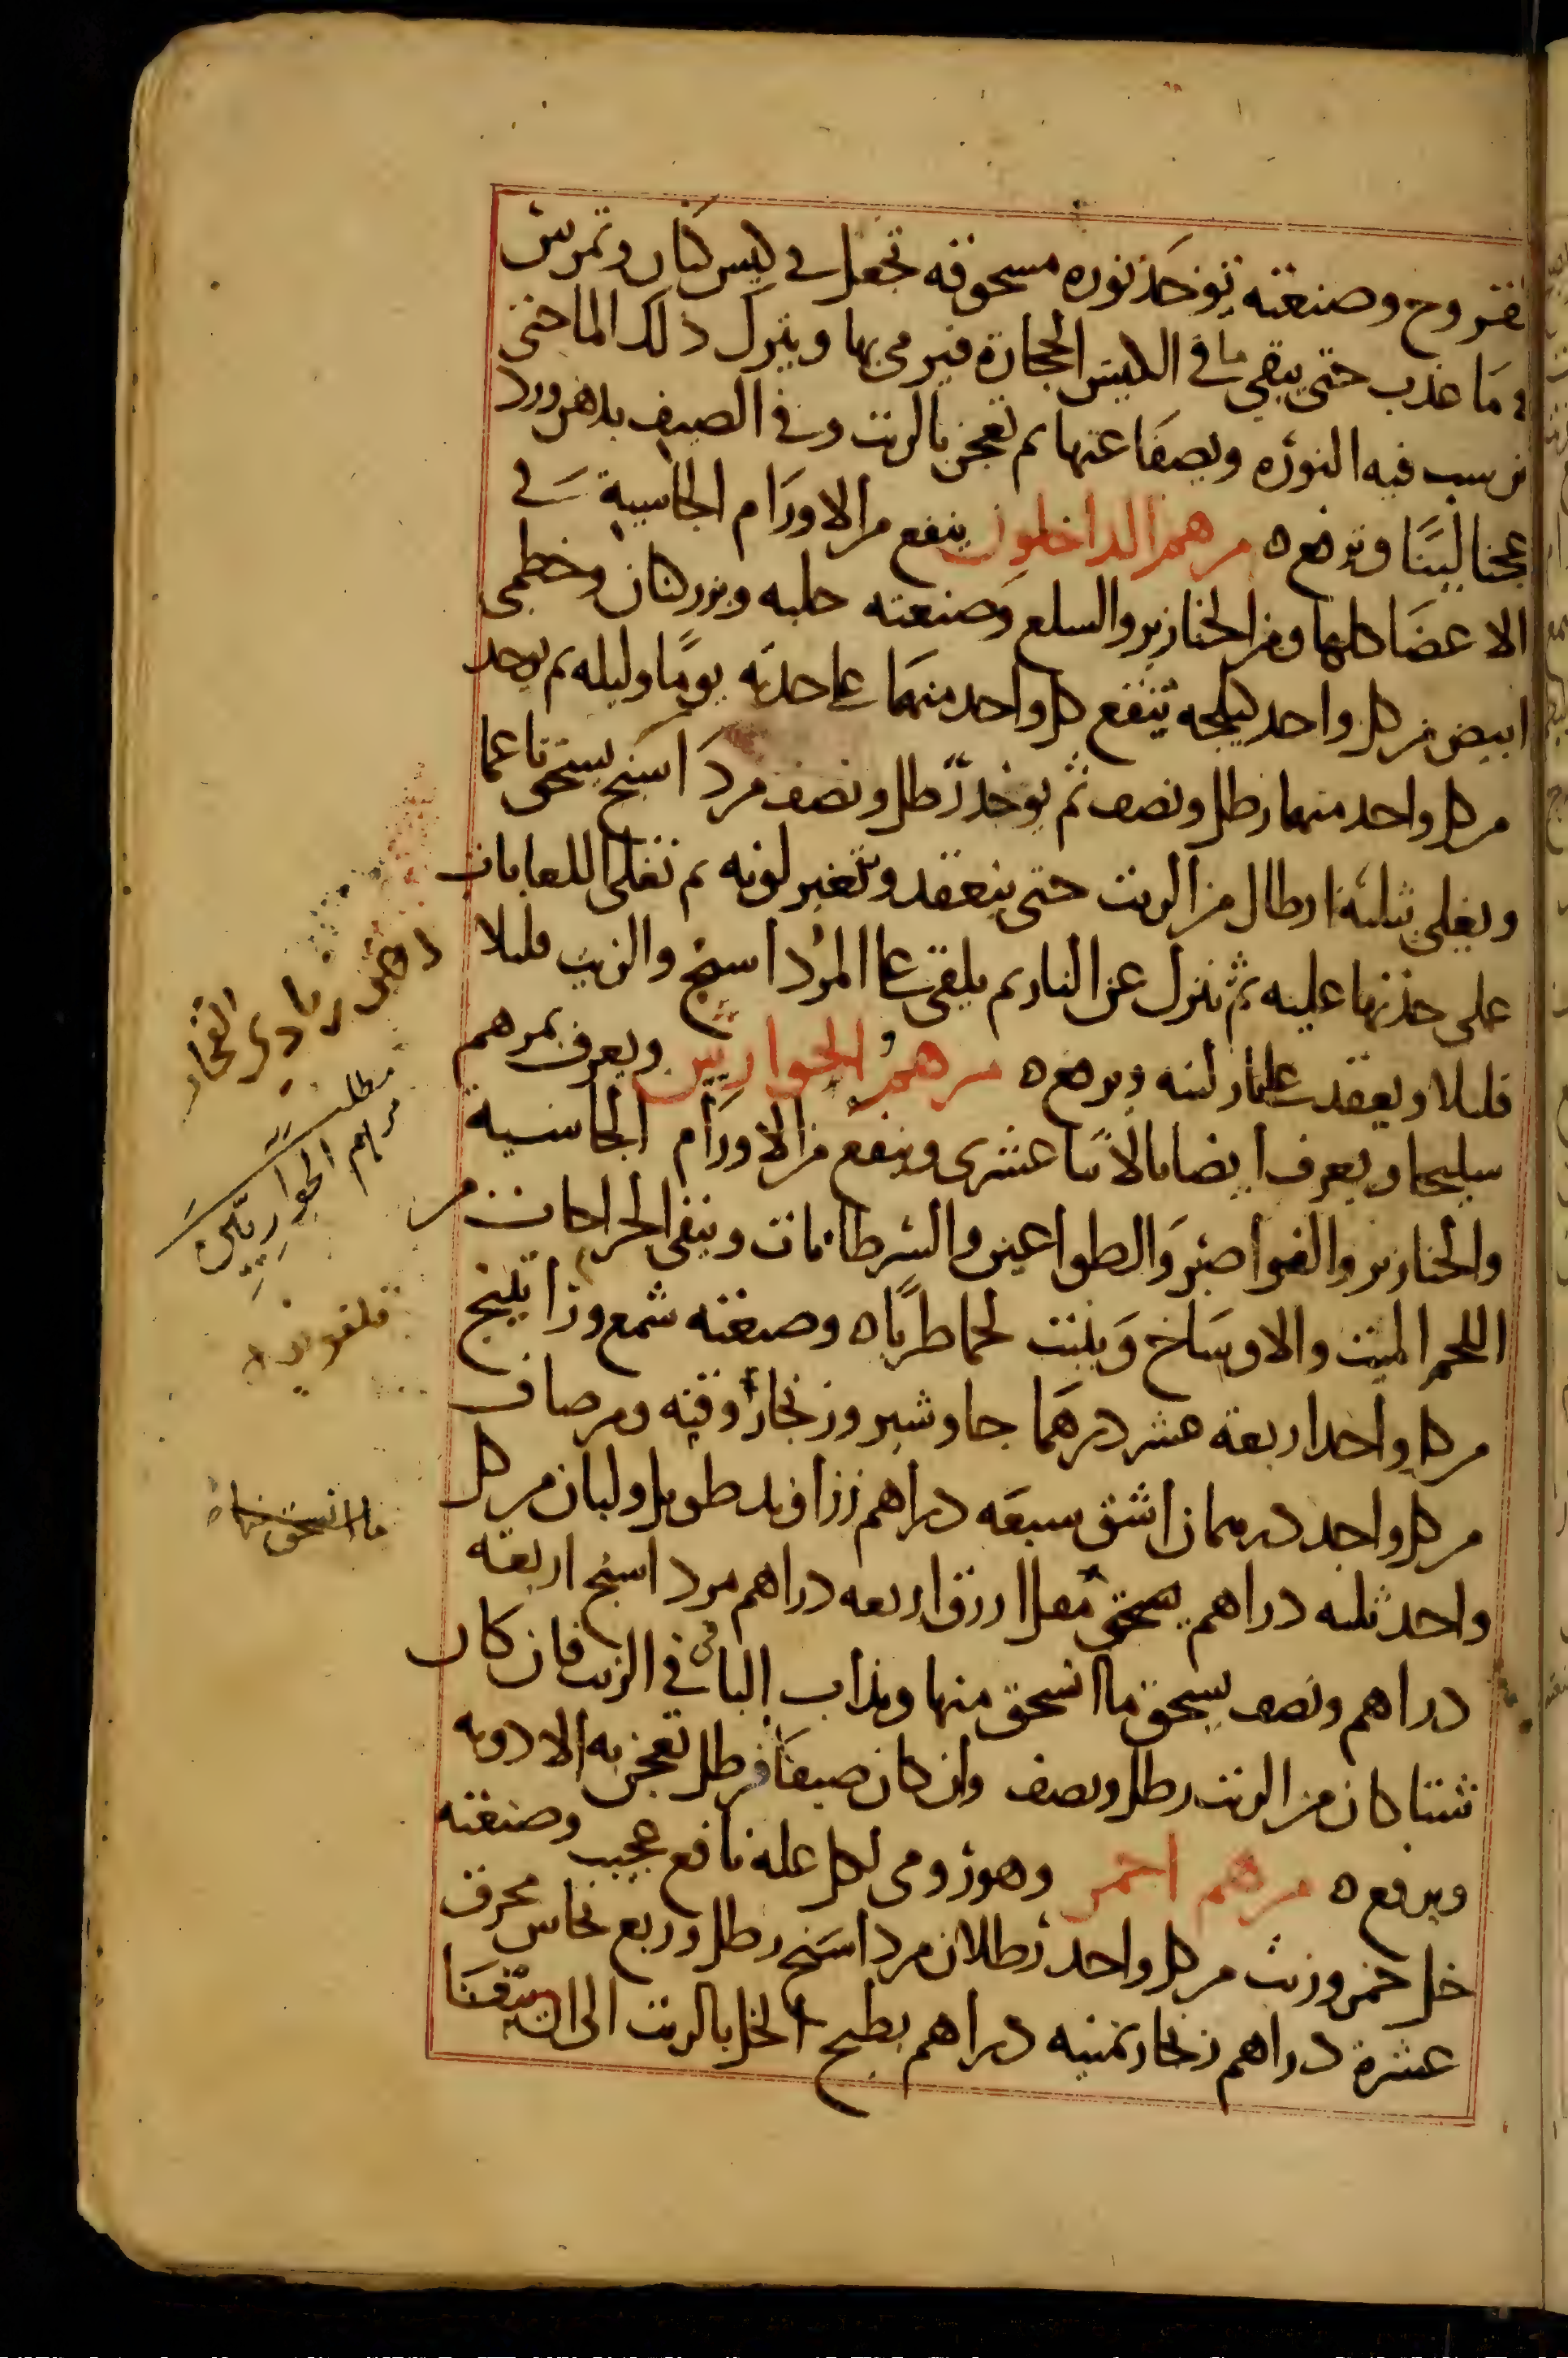 لقروح وصنعته توخذ نوره مسحوقه تجعل في كيس كتان وتمرش
في ما عذب حتى يبقى ما في الكيس الحجارة فيرمى بها ويترك ذلك الما حتى
ترسب فيه النوره ويصفا عنها ثم تعجن بالزيت وفي الصيف بدهن ورد
عجنا لينا ويرفع ه مرهم الداخلون ينفع من الاورام الجاسية في
الاعضا كلها ومن الخنازير والسلع وصنعته حلبه وبزر كتان وخطمي
ابيض من كل واحد كيلجه ينقع كل واحد منهما على حدته يوما وليله ثم يوخذ
من كل واحد منهما رطل ونصف ثم يوخذ رطل ونصف مرداسنج يسحق ناعما
ويغلى بثلثة ارطال من الزيت حتى ينعقد ويتغير لونه ثم تغلى اللعابات
على حدتها عليه ثم تنزل عن النار ثم يلقى على المرداسنج والزيت قليلا
قليلا ويعقد على نار لينه ويرفع ه مرهم الحواريين ويعرف بمرهم
سليحا ويعرف ايضا بالاثنا عشرى وينفع من الاورام الجاسية
والخنازير والغواصير والطواعين والسرطانات وينقي الجراحات من
اللحم الميت والاوساخ وينبت لحما طريا ه وصنعته شمع وراتينج
من كل واحد اربعة عشر درهما جاوشير وزنجار اوقيه ومر صاف
من كل واحد درهمان اشق سبعه دراهم زراوند طويل ولبان من كل
واحد ثلثه دراهم يسحق مقل ازرق اربعه دراهم مرداسنج اربعة
دراهم ونصف يسحق ما انسحق منها ويذاب الباقي في الزيت فان كان
شتا كان من الزيت رطل ونصف وان كان صيفا فرطل تعجن به الادويه
ويرفع ه مرهم احمر وهو رومى لكل علة نافع عجيب وصنعته
خل خمر وزيت من كل واحد رطلان مرداسنج رطل وربع نحاس محرق
عشرة دراهم زنجار ثمنيه دراهم يطبخ الخل بالزيت الى ان يفنا
مطلب
مرهم الحواريين
قلفونيه
ما انسحق منها